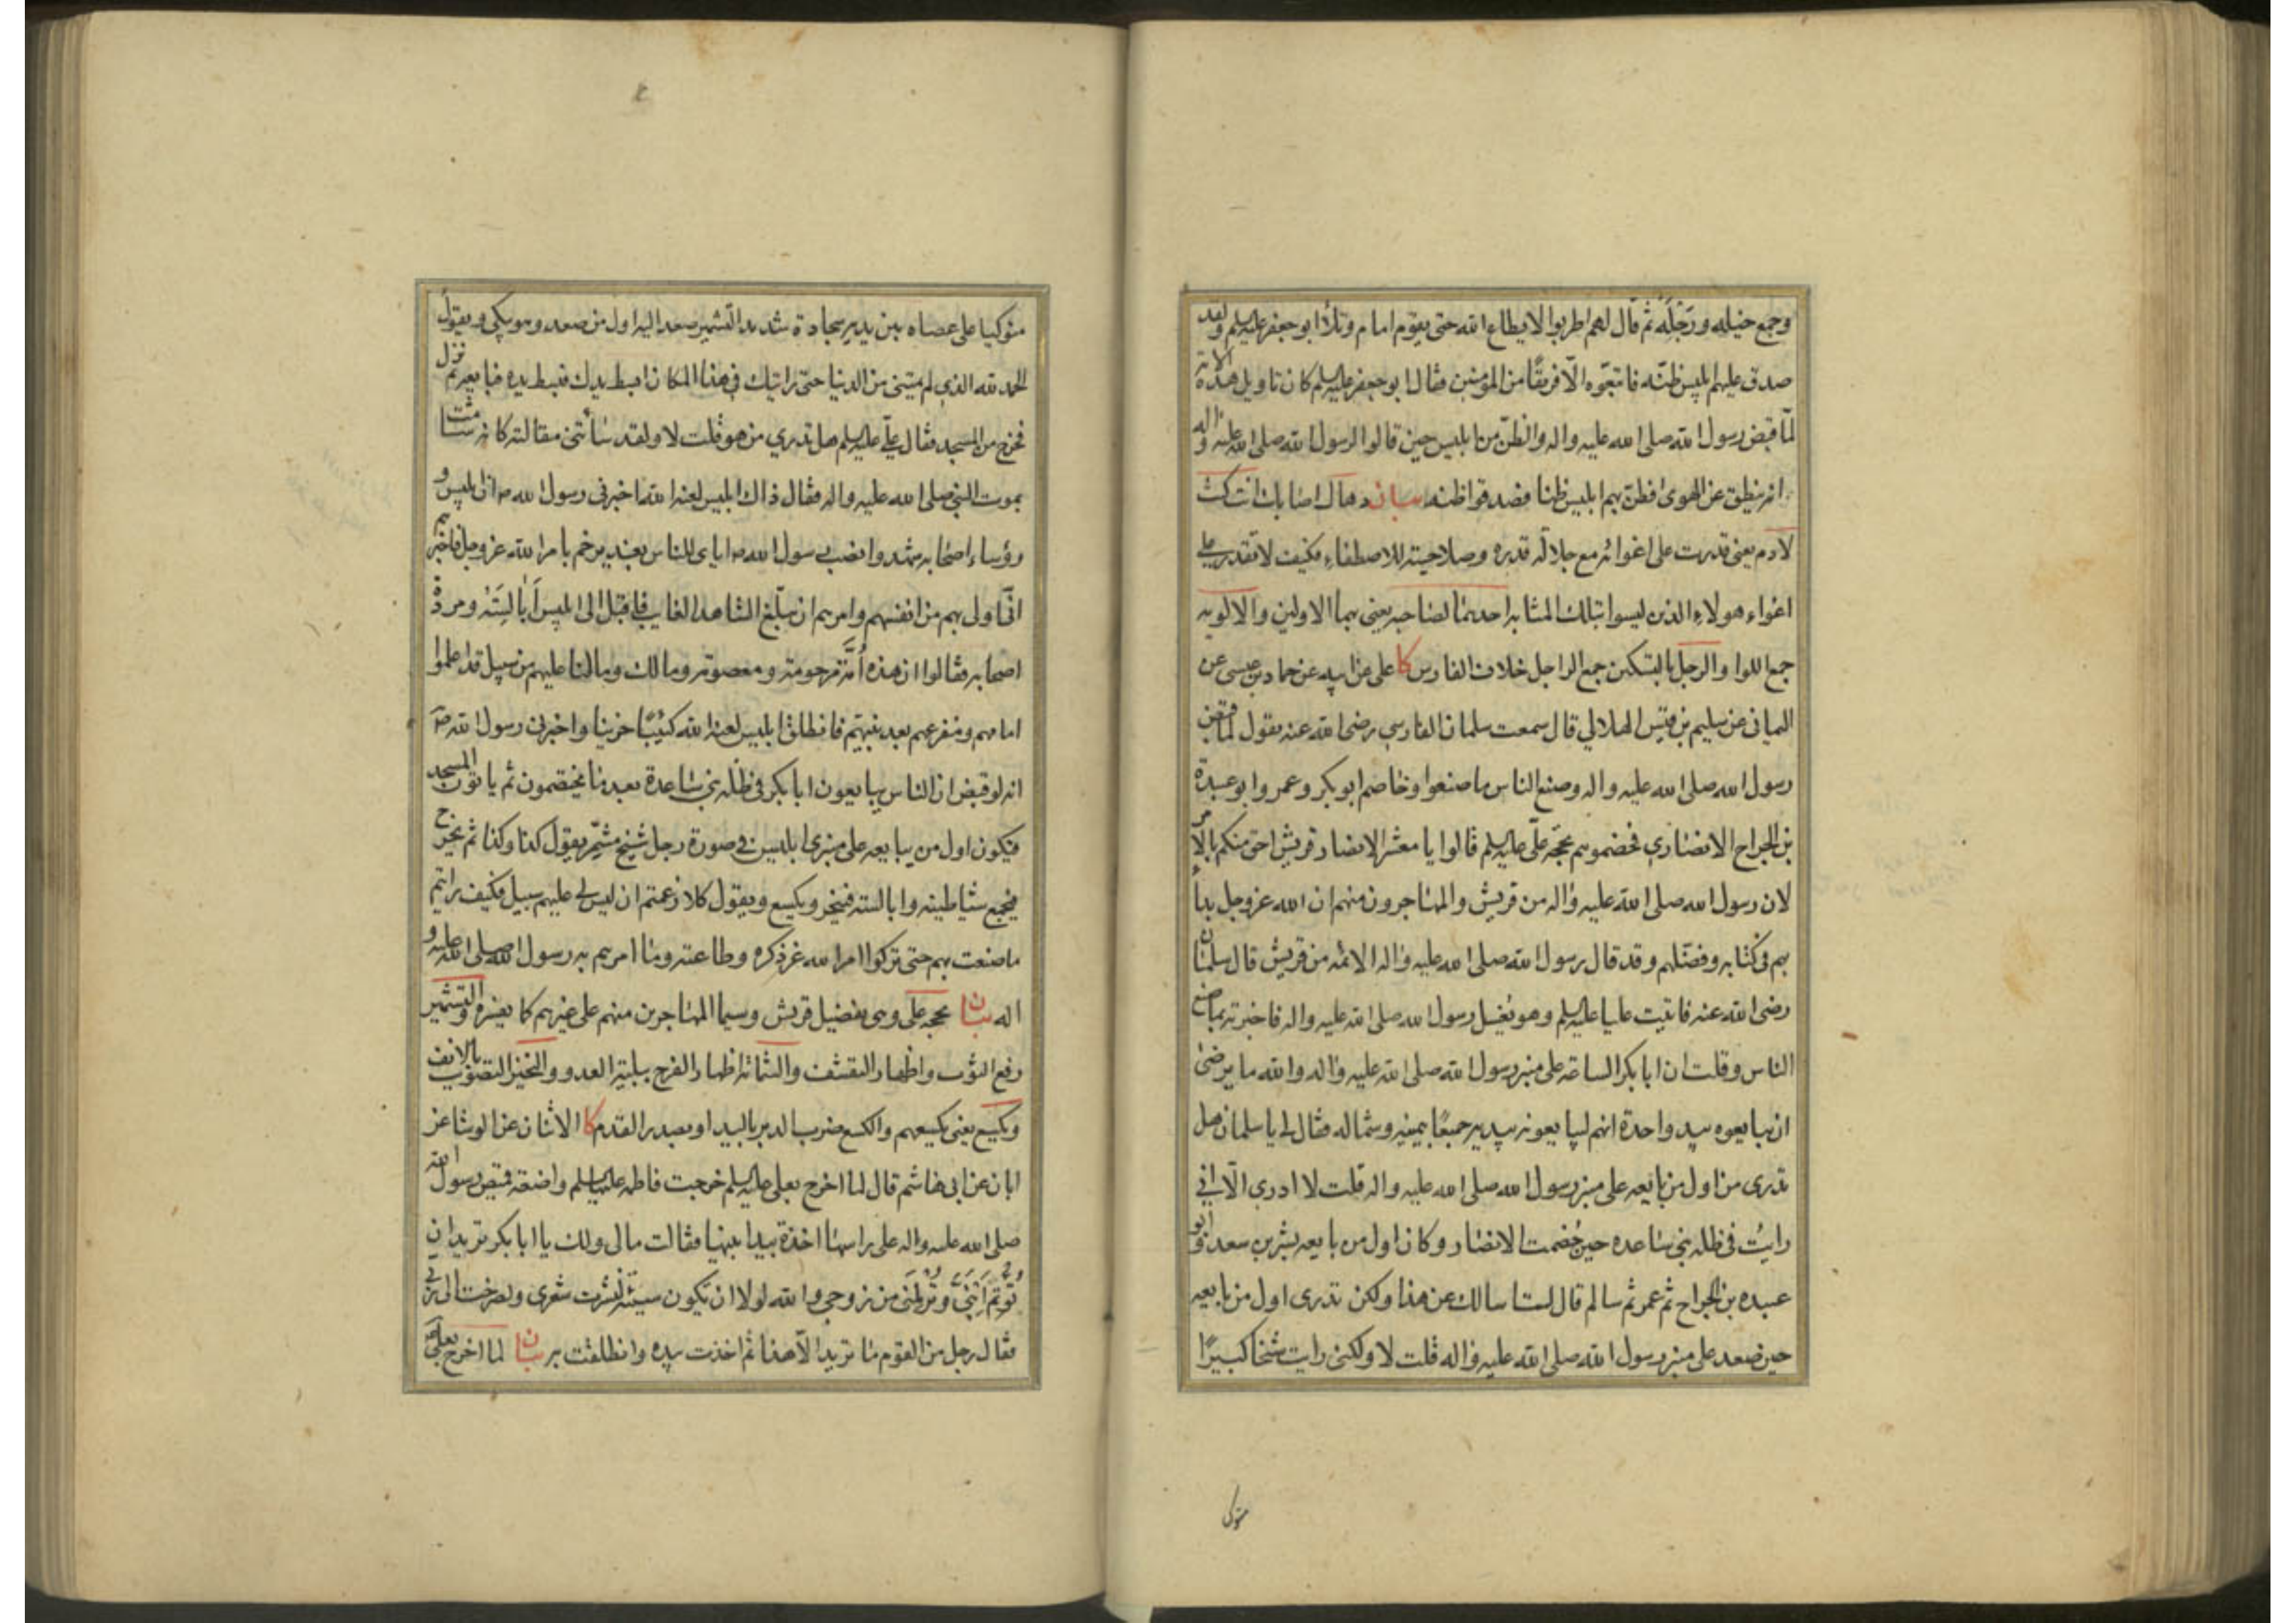 وجمع خيله ورَجْلَهُ ثم قال لهم اطربوا لا يطاع الله حتى يقوم امام وتلا ابو جعفر عليه السلم ولقد
صدق عليهم ابليس ظنّه فاتبعوه الّا فريقًا من المؤمنين فقال ابو جعفر عليه السلم كان تاويل هذه الاية
لمّا قبض رسول الله صلى الله عليه واله والظنّ من ابليس حين قالوا لرسول الله صلى الله عليه واله
انه ينطق عن الهوى فظن بهم ابليس ظنا فصدقوا ظنه بيان انت كنت
لادم يعني قدرت على اغوائه مع جلالة قدره وصلاحيته للاصطفاء فكيف لا تقدر على
اغواء هولاء الذين ليسوا بتلك المثابه احديهما لصاحبه يعني بهما الاولين والالويه
جمع اللوا والرجل بالتسكين جمع الراجل خلاف الفارس كا على عن ابيه عن حماد بن عيسى عن
اليماني عن سليم بن قيس الهلالي قال سمعت سلمان الفارسي رضى الله عنه يقول لما قبض
رسول الله صلى الله عليه واله وصنع الناس ما صنعوا وخاصم ابو بكر وعمر وابو عبيدة
بن الجراح الانصاري فخصموهم بحجة علي عليه السلم قالوا يا معشر الانصار قريش احق منكم بالامر
لان رسول الله صلى الله عليه واله من قريش والمهاجرون منهم ان الله عز وجل بدأ
بهم في كتابه وفضّلهم وقد قال رسول الله صلى الله عليه واله الائمه من قريش قال سلمان
رضى الله عنه فاتيت عليا عليه السلم وهو يغسل رسول الله صلى الله عليه واله فاخبرته بما صنع
الناس وقلت ان ابا بكر الساعة على منبر رسول الله صلى الله عليه واله والله ما يرضى
ان يبايعوه بيد واحدة انهم ليبايعونه بيديه جميعًا بيمينه وشماله فقال لي يا سلمان هل
تدرى من اول من بايعه على منبر رسول الله صلى الله عليه واله قلت لا ادري الّا انّي
رايتُ في ظله بني ساعده حين خُصمت الانصار وكان اول من بايعه بشر بن سعد وابو
عبيده بن الجراح ثم عمر ثم سالم قال لست اسالك عن هذا ولكن تدرى اول من بايعه
حين صعد على منبر رسول الله صلى الله عليه واله قلت لا ولكنى رايت شيخا كبيرًا
متوكيا
متوكيا على عصاه بين يديه سجادة شديد التشمير صعد اليه اول من صعد وهو يبكي ويقول
الحمد لله الذي لم يمتني من الدنيا حتى رايتك في هذا المكان ابسط يدك فبسط يده فبايعه ثم نزل
فخرج من المسجد فقال علي عليه السلم هل تدري من هو قلت لا ولقد سأتني مقالته كانه شامت
بموت النبي صلى الله عليه واله فقال ذاك ابليس لعنه الله اخبرني رسول الله ص ان ابليس و
رؤساء اصحابه شهدوا نصب رسول الله ص اياى للناس بغدير خم بامر الله عز وجل فاخبرهم
انّي اولى بهم من انفسهم وامرهم ان يبلّغ الشاهد الغايب فاقبل الى ابليس اَبالِسَتَهُ ومردة
اصحابه فقالوا ان هذه اُمّة مرحومة ومعصومة ومالك ومالنا عليهم من سبيل قد اعلموا
امامهم ومفزعهم بعد نبيّهم فانطلق ابليس لعنه الله كئيبًا حزينا واخبرني رسول الله ص
انه لو قبض ان الناس يبايعون ابا بكر في ظله بني ساعدة بعد ما يختصمون ثم ياتون المسجد
فيكون اول من يبايعه على منبرى ابليس في صورة رجل شيخ مشمّر يقول كذا وكذا ثم يخرج
فيجمع شياطينه وابالسته فينخر ويكسع ويقول كلا زعمتم ان ليس لي عليهم سبيل فكيف رايتم
ما صنعت بهم حتى تركوا امر الله عز ذكره وطاعته وما امرهم به رسول الله صلى الله عليه و
اله بيان بحجة على وهي تفضيل قريش وسيما المهاجرين منهم على غيرهم كا يفسره والتشمير
رفع الثوب واظهار التقشف والشماتة اظهار الفرح ببلية العدو والنخير التصويت بالانف
ويكسع يعنى يكسعهم والكسع ضرب الدبر باليد او بصدر القدم كا الاثنان عن الوشا عن
ابان عن ابي هاشم قال لما اخرج بعلي عليه السلم خرجت فاطمه عليها السلم واضعة قميص رسول الله
صلى الله عليه واله على راسها اخذة بيد ابنيها فقالت مالي ولك يا ابا بكر تريد ان
تُؤتِم اِبْنَيَّ وتُرمِلَنى من زوجي والله لولا ان يكون سيئة لنشرت شعرى ولصرخت الى ربي
فقال رجل من القوم ما تريد الّا هذا ثم اخذت بيده وانطلقت به بيان لما اخرج بعلي ع